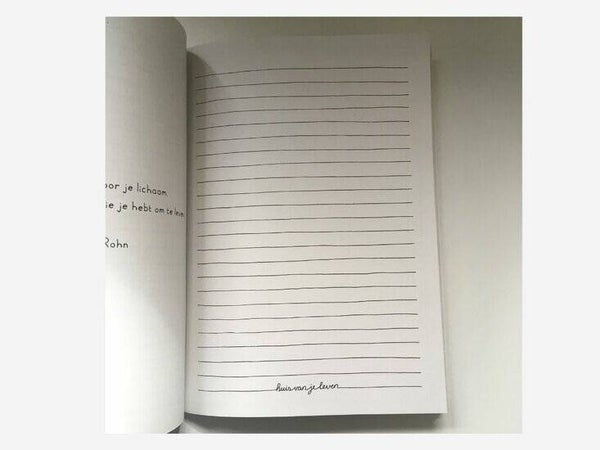 oor je lichaam
ie je hebt om te leven
Rohn
huis van je leven